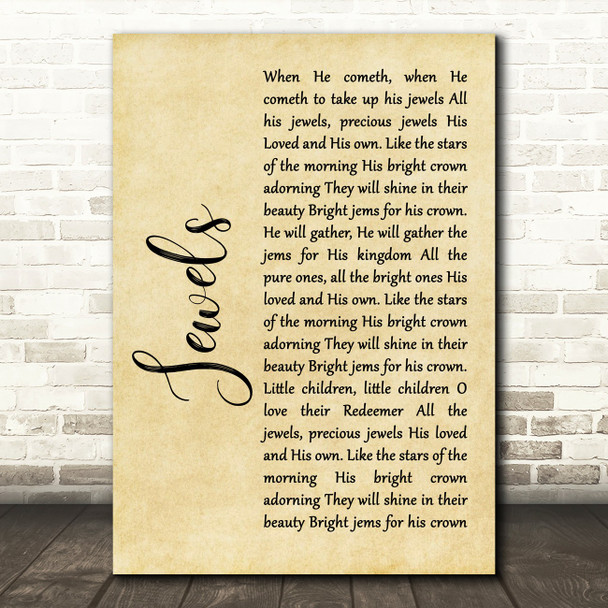 Jewels
When He cometh, when He
cometh to take up his jewels All
his jewels, precious jewels His
Loved and His own. Like the stars
of the morning His bright crown
adorning They will shine in their
beauty Bright jems for his crown.
He will gather, He will gather the
jems for His kingdom All the
pure ones, all the bright ones His
loved and His own. Like the stars
of the morning His bright crown
adorning They will shine in their
beauty Bright jems for his crown.
Little children, little children O
love their Redeemer All the
jewels, precious jewels His loved
and His own. Like the stars of the
morning His bright crown
adorning They will shine in their
beauty Bright jems for his crown